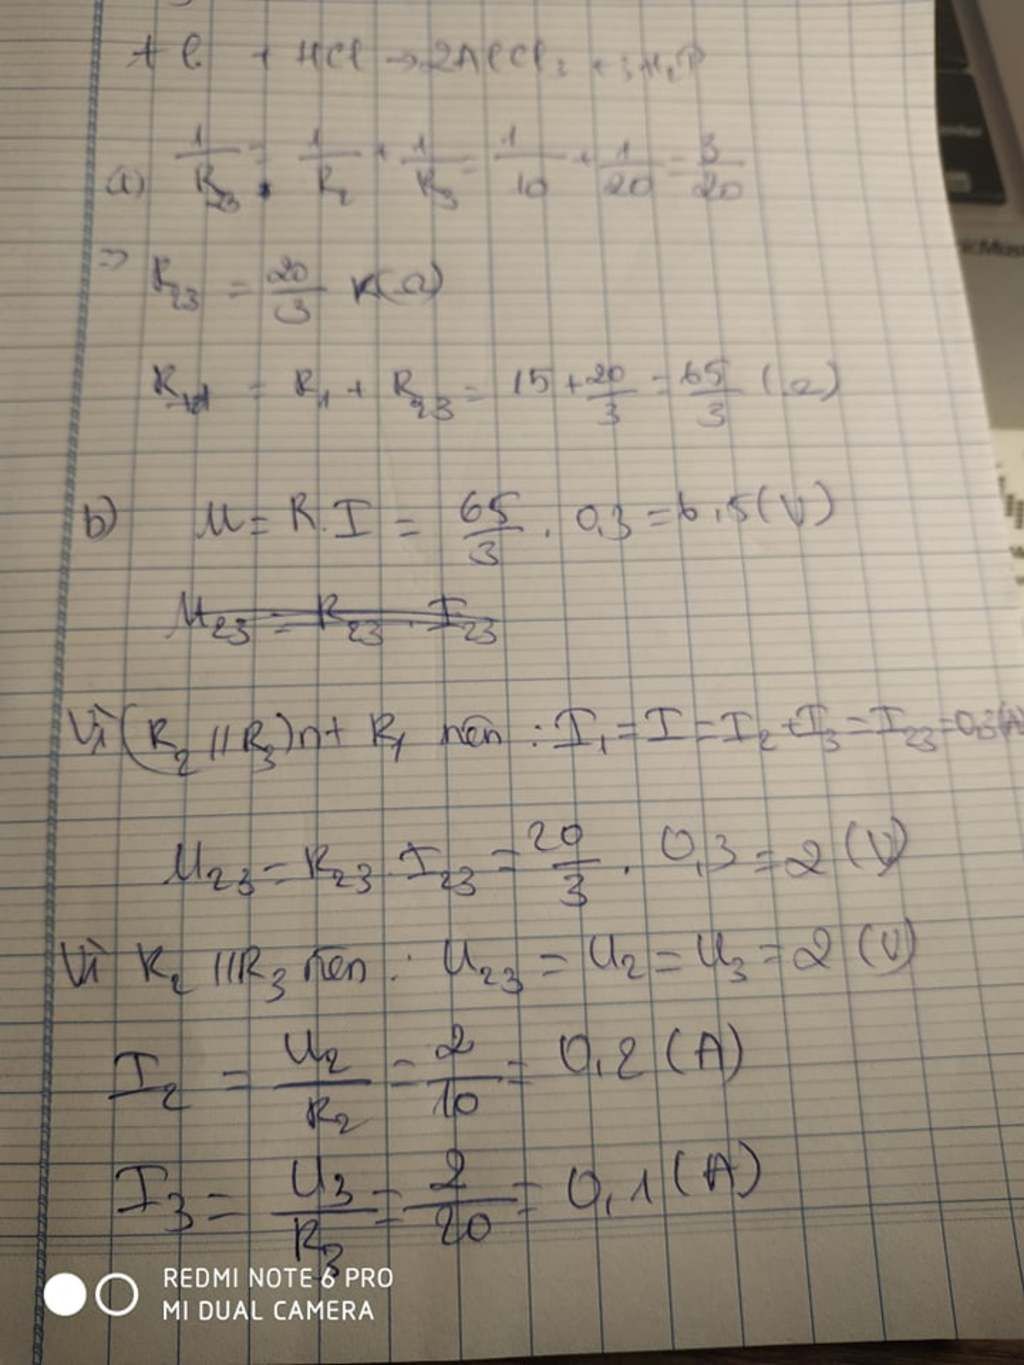 + HCl → 2AlCl₃ + 3H₂↑
a) 1/R₂₃ = 1/R₂ + 1/R₃ = 1/10 + 1/20 = 3/20
=> R₂₃ = 20/3 (Ω)
Rtđ = R₁ + R₂₃ = 15 + 20/3 = 65/3 (Ω)
b) U = R.I = 65/3 . 0,3 = 6,5 (V)
U₂₃ = R₂₃ . I₂₃
Vì (R₂ // R₃) nt R₁ nên : I₁ = I = I₂ + I₃ = I₂₃ = 0,3 (A)
U₂₃ = R₂₃ . I₂₃ = 20/3 . 0,3 = 2 (V)
Vì R₂ // R₃ nên : U₂₃ = U₂ = U₃ = 2 (V)
I₂ = U₂/R₂ = 2/10 = 0,2 (A)
I₃ = U₃/R₃ = 2/20 = 0,1 (A)
REDMI NOTE 6 PRO
MI DUAL CAMERA